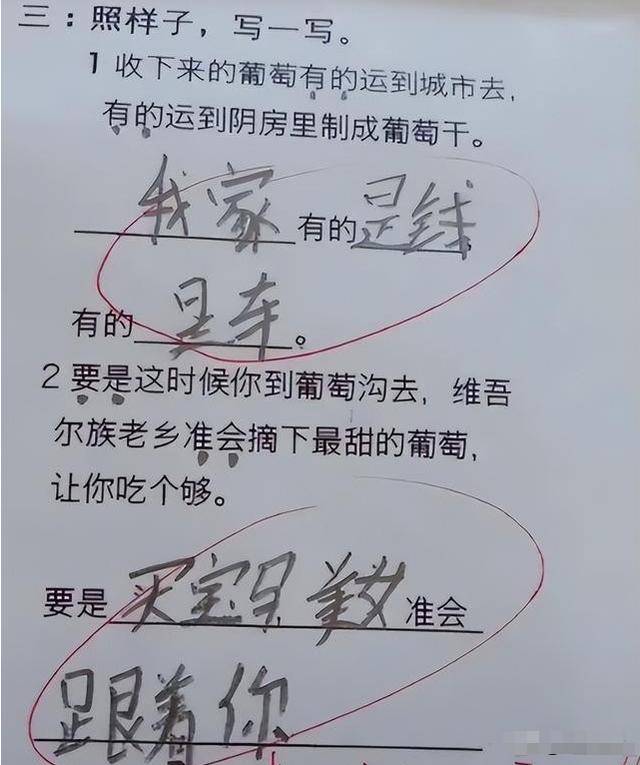 三：照样子，写一写。
1 收下来的葡萄有的运到城市去，
有的运到阴房里制成葡萄干。
我家有的是钱，
有的是车。
2 要是这时候你到葡萄沟去，维吾
尔族老乡准会摘下最甜的葡萄，
让你吃个够。
要是买宝马，美女准会
跟着你